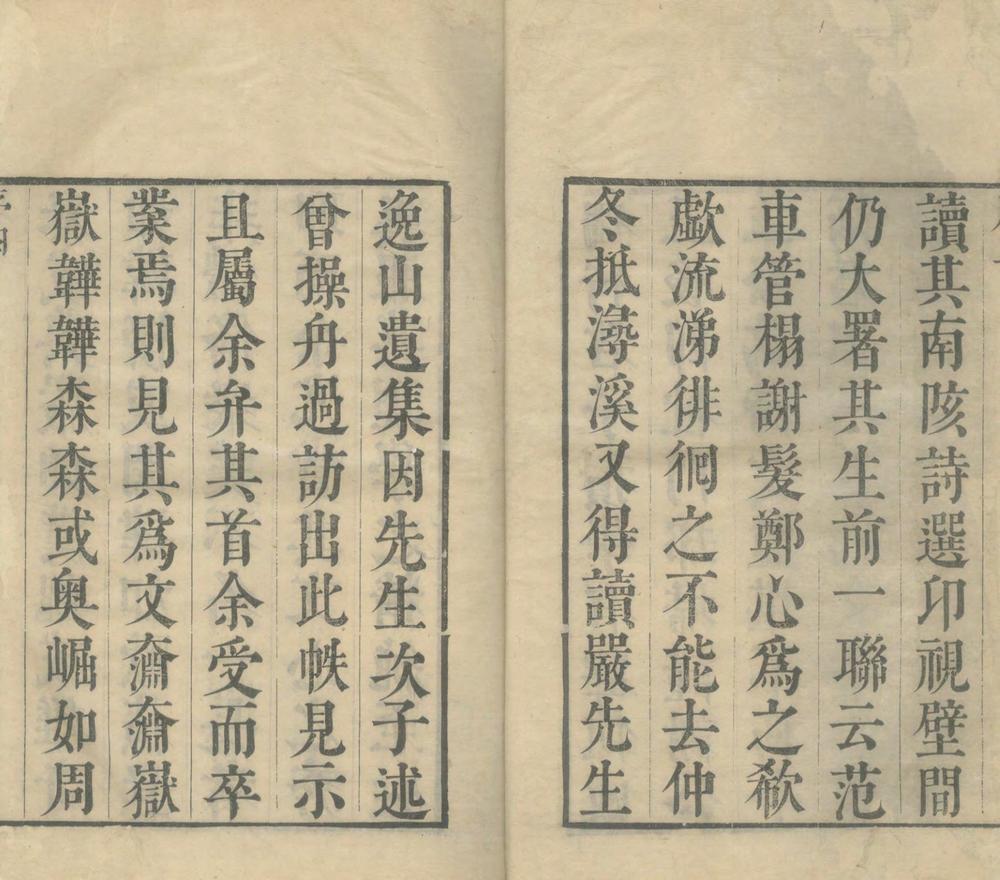 讀其南陔詩選卬視壁間
仍大署其生前一聯云范
車管榻謝髮鄭心爲之欷
歔流涕徘徊之不能去仲
冬抵潯溪又得讀嚴先生
逸山遺集因先生次子述
曾操舟過訪出此帙見示
且屬余弁其首余受而卒
業焉則見其爲文奫奫嶽
嶽韡韡森森或奥崛如周